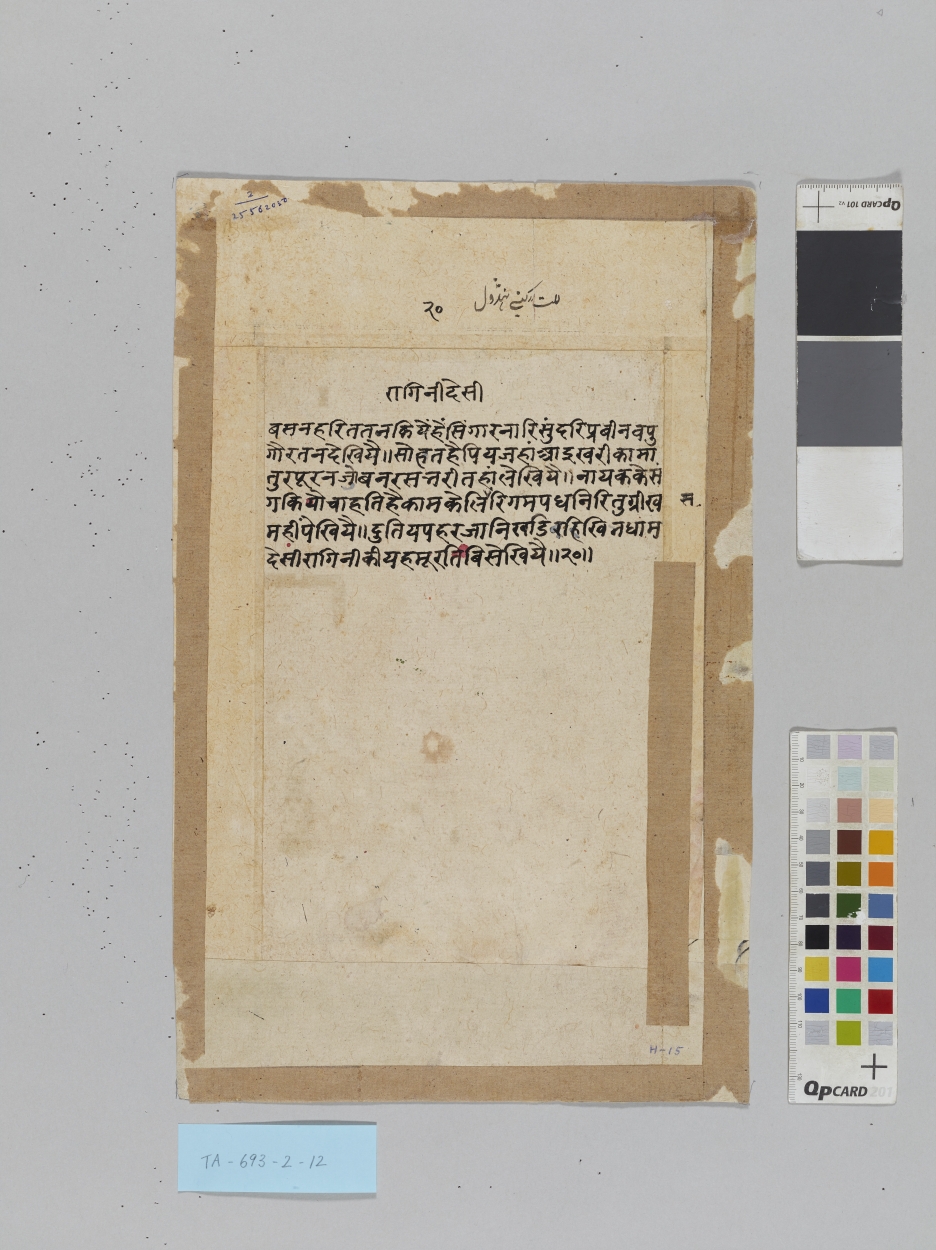 2
२०
रागिनीदेसी
बसनहरिततनकियेंहैंसिंगारनारिसुंदरिप्रबीनवपु
गौरतनदेखियै॥सोहतहैपियजहां
तुरपूरनजोबनरस लेखियै॥नायककैसं
गकियौचाहतिहैकामकेलिरिगमपधनिरितुग्रीख
म
महींपेखियै॥दुतियपहरजानि
देसीरागिनीकीयहमूरतिबिसेखियै॥२०॥
H-15
TA-693-2-12
QpCARD 101 v2
QpCARD 201